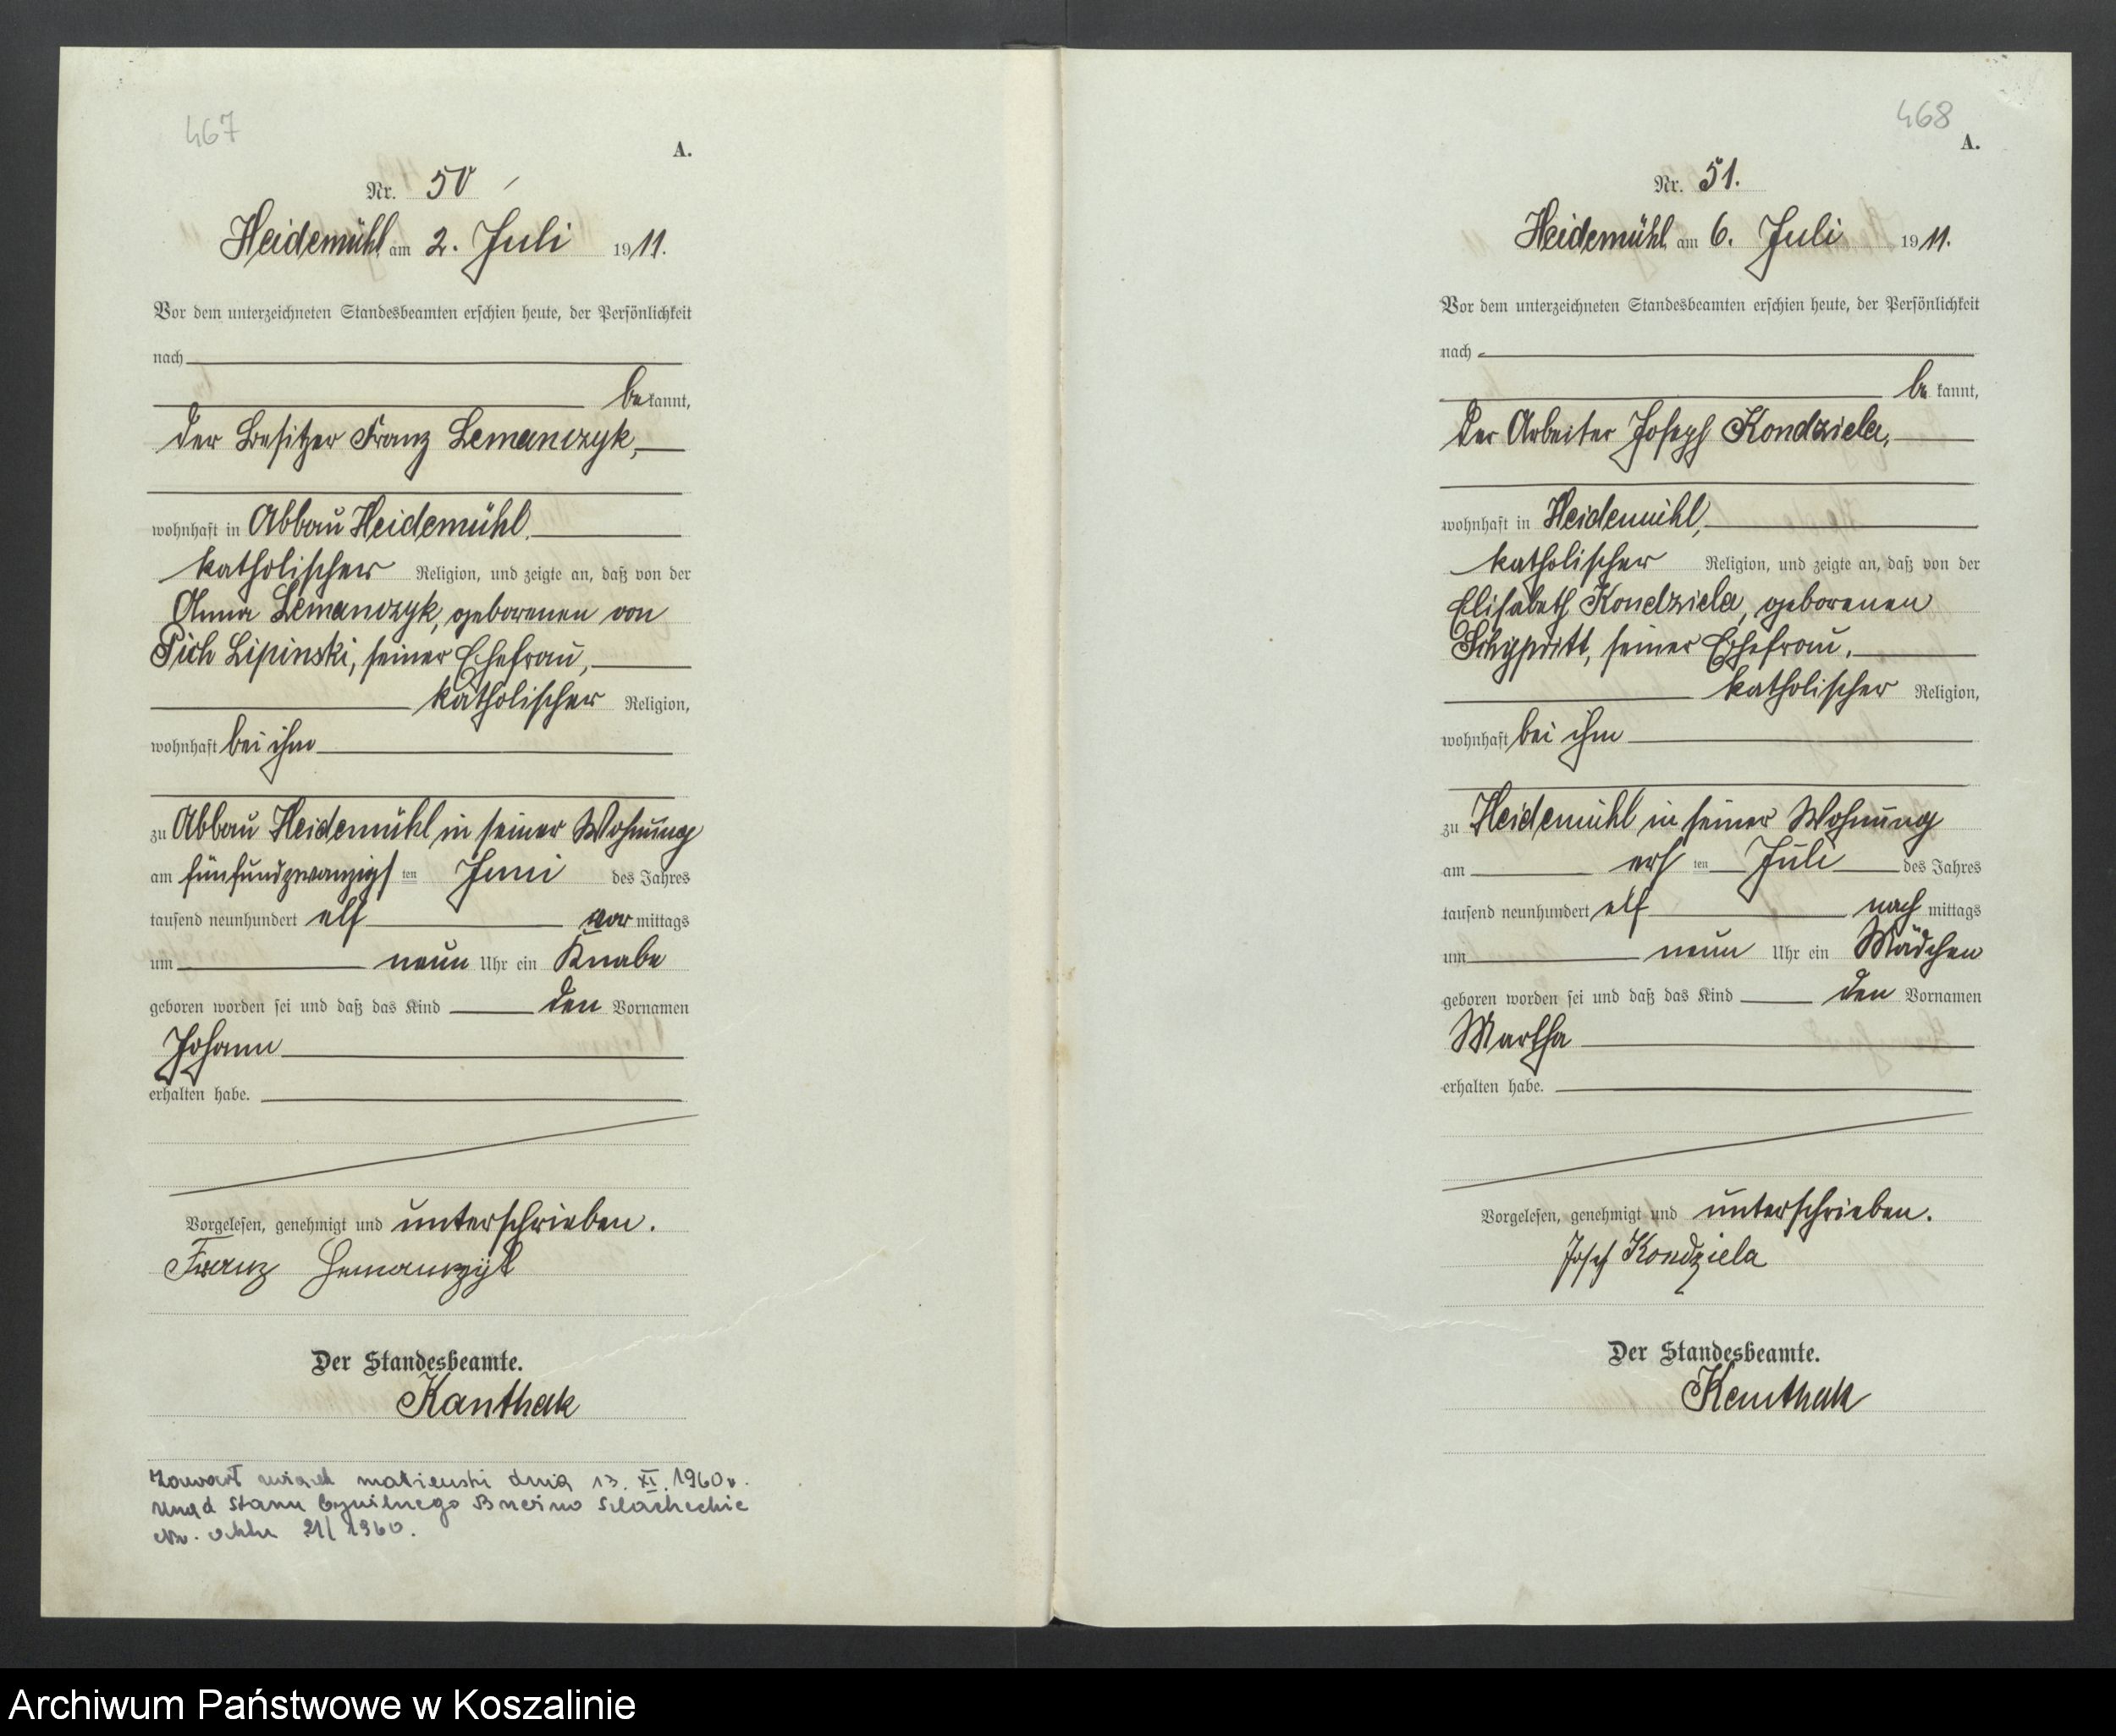 467
A.
Nr. 50
Heidemühl am 2. Juli 1911.
Vor dem unterzeichneten Standesbeamten erschien heute, der Persönlichkeit
nach
bekannt,
der Besitzer Franz Lemanczyk,
wohnhaft in Abbau Heidemühl,
katholischer Religion, und zeigte an, daß von der
Anna Lemanczyk, geborenen von
Pich Lipinski, seiner Ehefrau,
katholischer Religion,
wohnhaft bei ihm
zu Abbau Heidemühl in seiner Wohnung
am fünfundzwanzigsten Juni des Jahres
tausend neunhundert elf vormittags
um neun Uhr ein Knabe
geboren worden sei und daß das Kind den Vornamen
Johann
erhalten habe.
Vorgelesen, genehmigt und unterschrieben.
Franz Lemanczyk
Der Standesbeamte.
Kanthak
Zawarł związek małżeński dnia 13. XI. 1960 r.
Urząd Stanu Cywilnego Brzeźno Szlacheckie
Nr. aktu 21/1960.
468
A.
Nr. 51.
Heidemühl am 6. Juli 1911.
Vor dem unterzeichneten Standesbeamten erschien heute, der Persönlichkeit
nach
bekannt,
der Arbeiter Joseph Kondziela,
wohnhaft in Heidemühl,
katholischer Religion, und zeigte an, daß von der
Elisabeth Kondziela, geborenen
seiner Ehefrau,
katholischer Religion,
wohnhaft bei ihm
zu Heidemühl in seiner Wohnung
am ersten Juli des Jahres
tausend neunhundert elf nachmittags
um neun Uhr ein Mädchen
geboren worden sei und daß das Kind den Vornamen
Martha
erhalten habe.
Vorgelesen, genehmigt und unterschrieben.
Josef Kondziela
Der Standesbeamte.
Kanthak
Archiwum Państwowe w Koszalinie